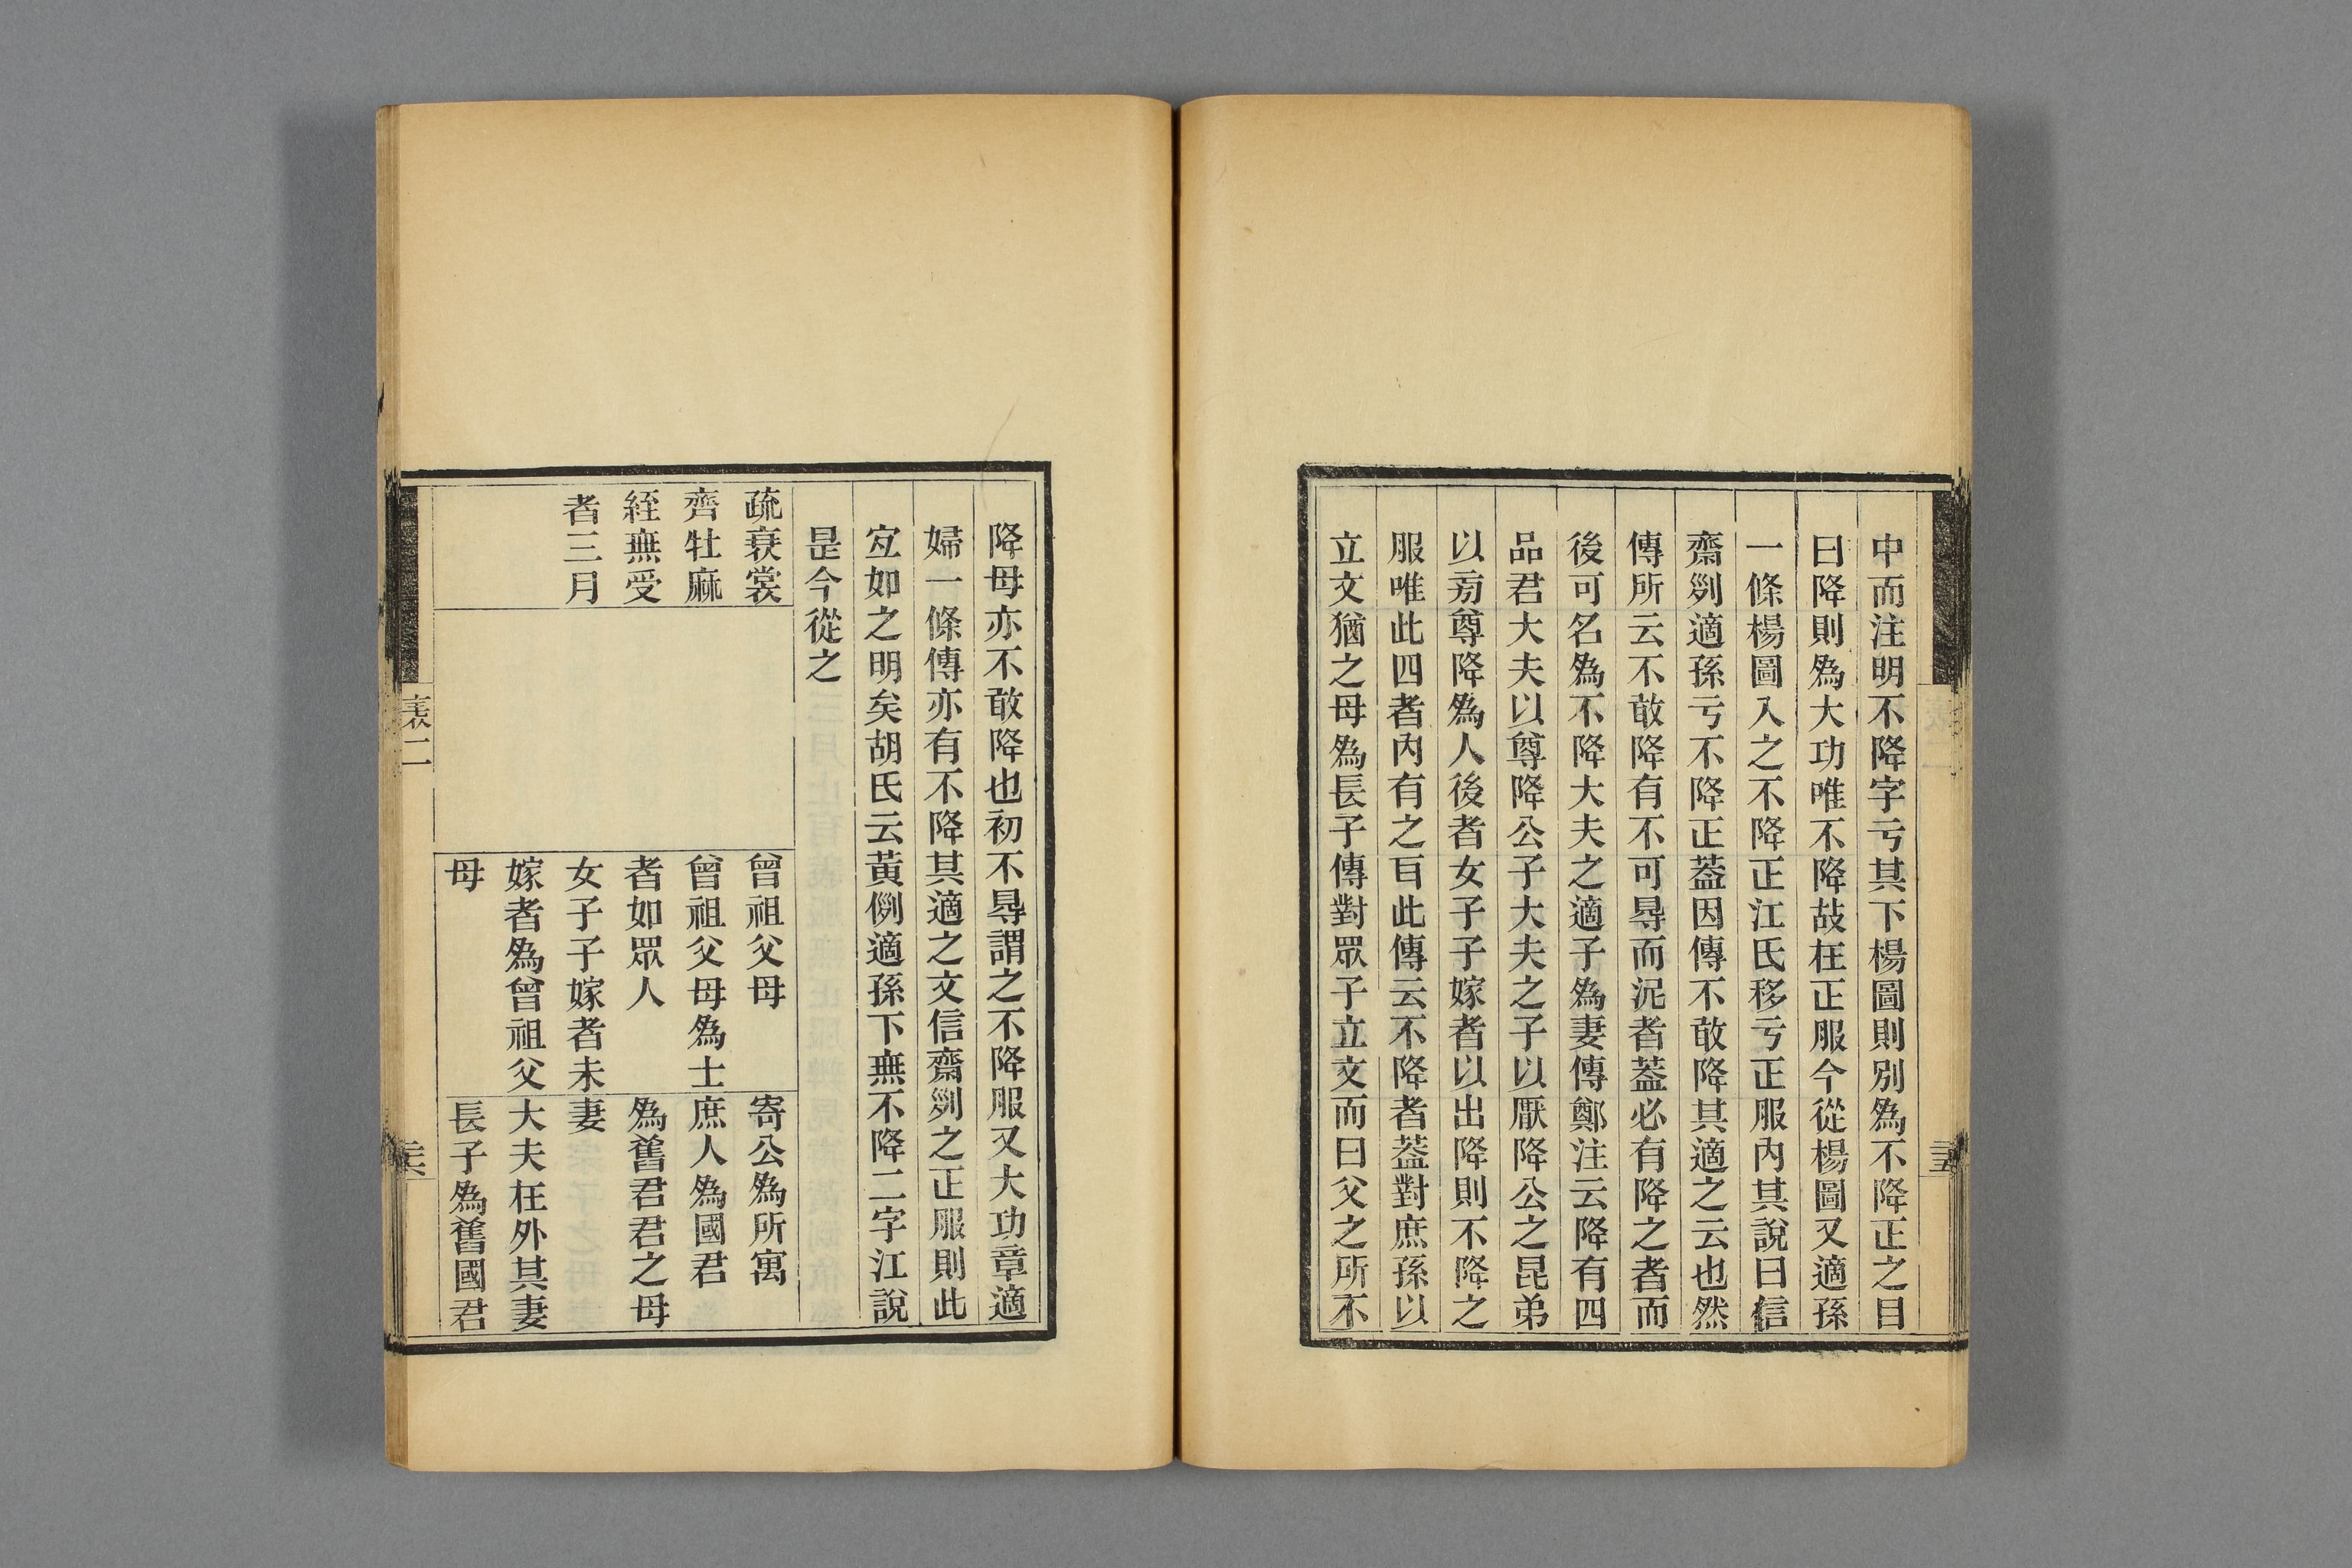 中而注明不降字亏其下楊圖則別為不降正之目
曰降則為大功唯不降故在正服今從楊圖又適孫
一條楊圖入之不降正江氏移亏正服內其說曰信
齋劉適孫亏不降正葢因傳不敢降其適之云也然
傳所云不敢降有不可㝵而泥者葢必有降之者而
後可名為不降大夫之適子為妻傳鄭注云降有四
品君大夫以尊降公子大夫之子以厭降公之昆弟
以㫄尊降為人後者女子子嫁者以出降則不降之
服唯此四者內有之𦣻此傳云不降者葢對庶孫以
立文猶之母為長子傳對眾子立文而曰父之所不
三五
降母亦不敢降也初不㝵謂之不降服又大功章適
婦一條傳亦有不降其適之文信齋劉之正服則此
宐如之明矣胡氏云黃例適孫下無不降二字江說
是今從之
疏衰裳
齊牡麻
絰無受
者三月
曾祖父母
曾祖父母為士
者如眾人
女子子嫁者未
嫁者為曾祖父
母
寄公為所寓
庶人為國君
為舊君君之母
妻
大夫在外其妻
長子為舊國君
表二
三六